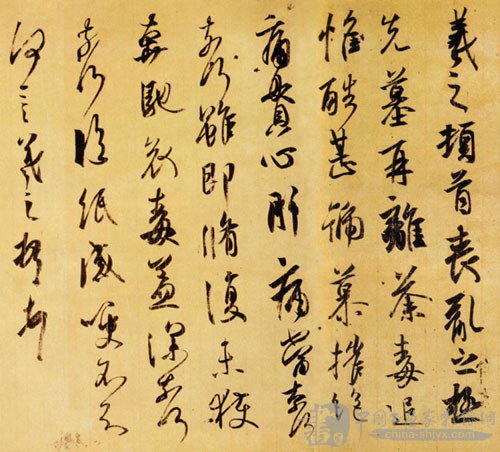 羲之頓首喪亂之極
先墓再離荼毒追
惟酷甚號慕摧絶
痛貫心肝痛當奈何
奈何雖即脩復未獲
奔馳哀毒益深奈何
奈何臨紙感哽不知
何言羲之頓首
china-shlyx.com